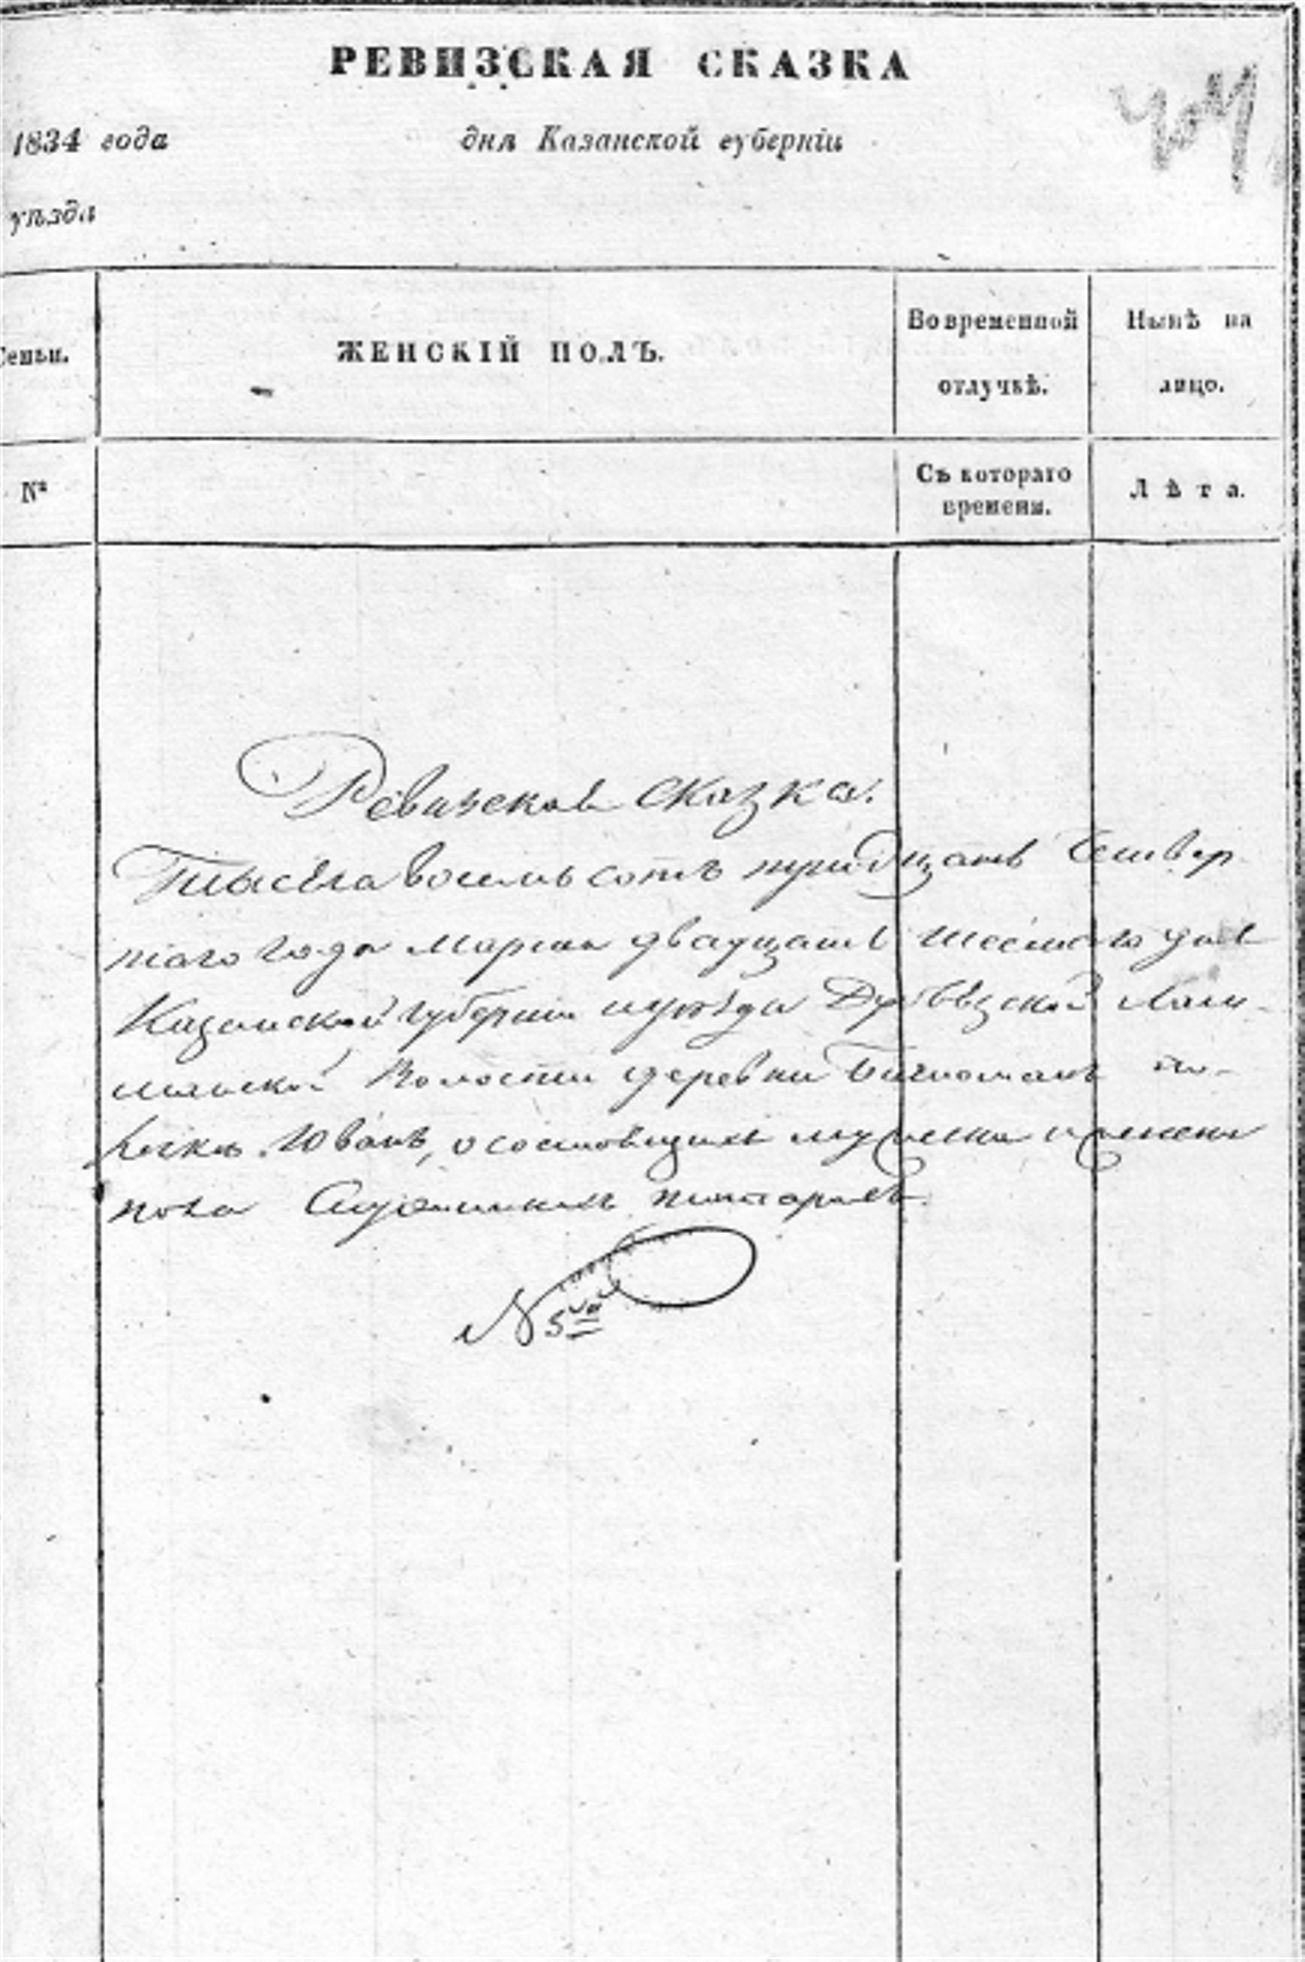 РЕВИЗСКАЯ СКАЗКА
1834 года дня Казанской губерніи
уѣзда
Семьи. ЖЕНСКІЙ ПОЛЪ. Во временной отлучкѣ. Нынѣ на лицо.
№ Съ котораго времени. Лѣта.
Ревизская сказка.
Тысяча восемь сотъ тридцать четвер
таго года марта двадцать шестаго дня
Казанской губерніи и уѣзда
волости деревни
о состоящихъ мужеска и женска
пола Служилыхъ татаръ
№ 5й